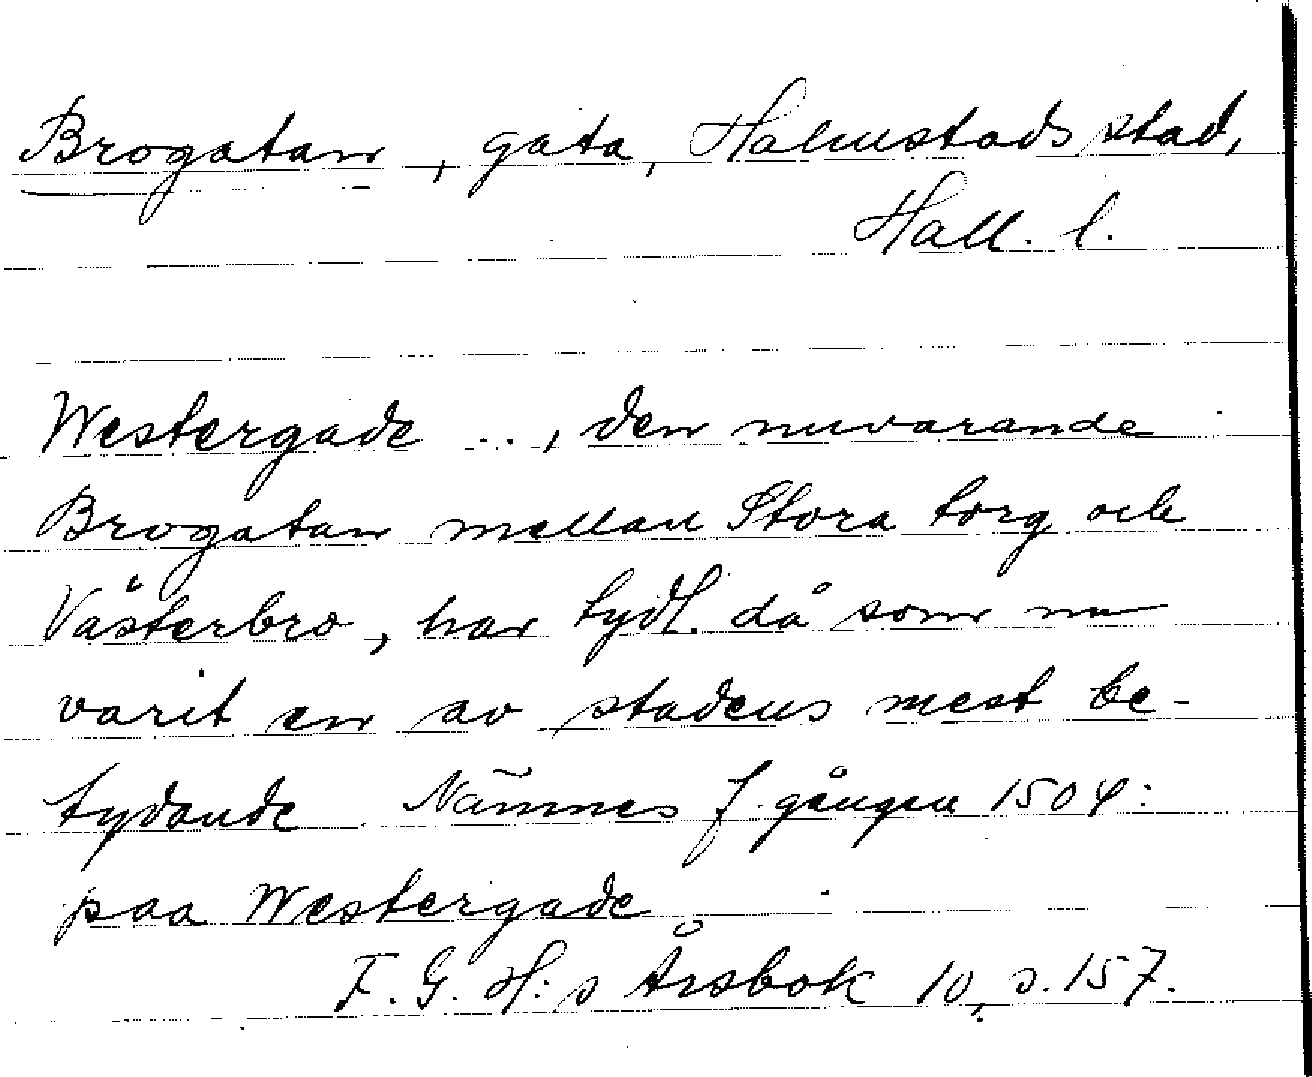 Brogatan, gata, Halmstads stad,
Hall. l.
Westergade .., den nuvarande
Brogatan mellan Stora torg och
Västerbro, har tydl. då som nu
varit en av stadens mest be-
tydande. Nämnes f. gången 1504:
paa Westergade.
F. G. H:s Årsbok 10, s. 157.